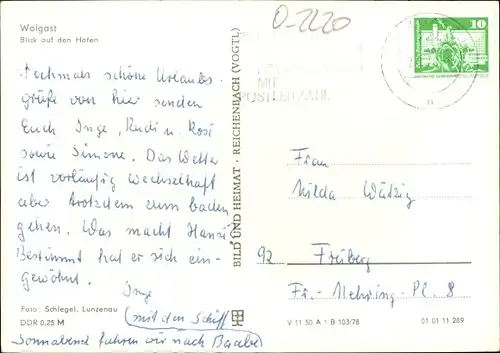 Wolgast
Blick auf den Hafen
O-2220
10
MIT
POSTLEITZAHL
Nochmals schöne Urlaubs-
grüße von hier senden
Euch Inge, Rudi u. Rosi
sowie Simone. Das Wetter
ist vorläufig wechselhaft
aber trotzdem zum baden
gehen. Was macht Hansi
Bestimmt hat er sich ein-
gewöhnt.
Inge
(mit dem Schiff
Sonnabend fahren wir nach Baabe)
BILD UND HEIMAT · REICHENBACH (VOGTL)
Frau
Hilda Wätzig
92 Freiberg
Fr.-Mehring-Pl. 8
Foto: Schlegel, Lunzenau
DDR 0.25 M
V 11 50 A 1 B 103/78
01 01 11 289